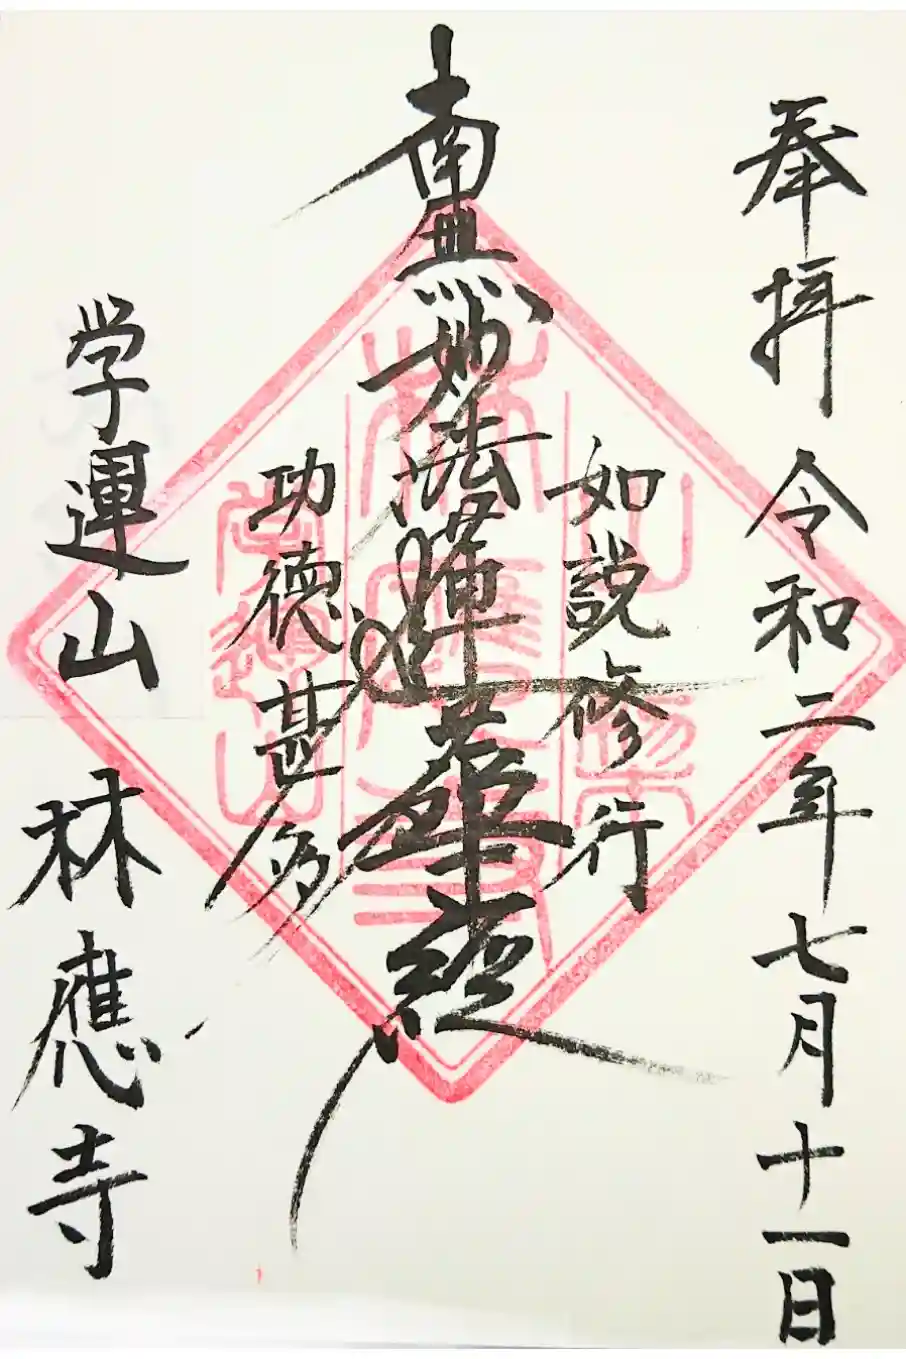 奉拝 令和二年七月十一日
如説修行
南無妙法蓮華経
功徳甚多
学運山 林應寺
林應寺
学運山